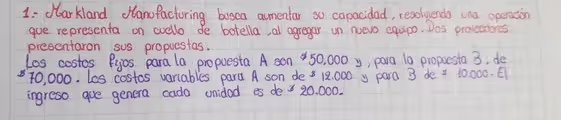 1.- Markland Manufacturing busca aumentar su capacidad, resolviendo una operación
que representa un cuello de botella, al agregar un nuevo equipo. Dos proveedores
presentaron sus propuestas.
Los costos fijos para la propuesta A son $50,000 y, para la propuesta B, de
$70,000. Los costos variables para A son de $ 12.000 y para B de $ 10.000. El
ingreso que genera cada unidad es de $ 20.000.-